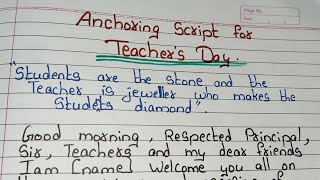 Page No.
Date
Anchoring Script for
Teacher's Day.
"Students are the stone and the
Teacher is jeweller who makes the
Students diamond".
Good morning, Respected Principal,
Sir, Teachers and my dear friends
I am [name] welcome you all on